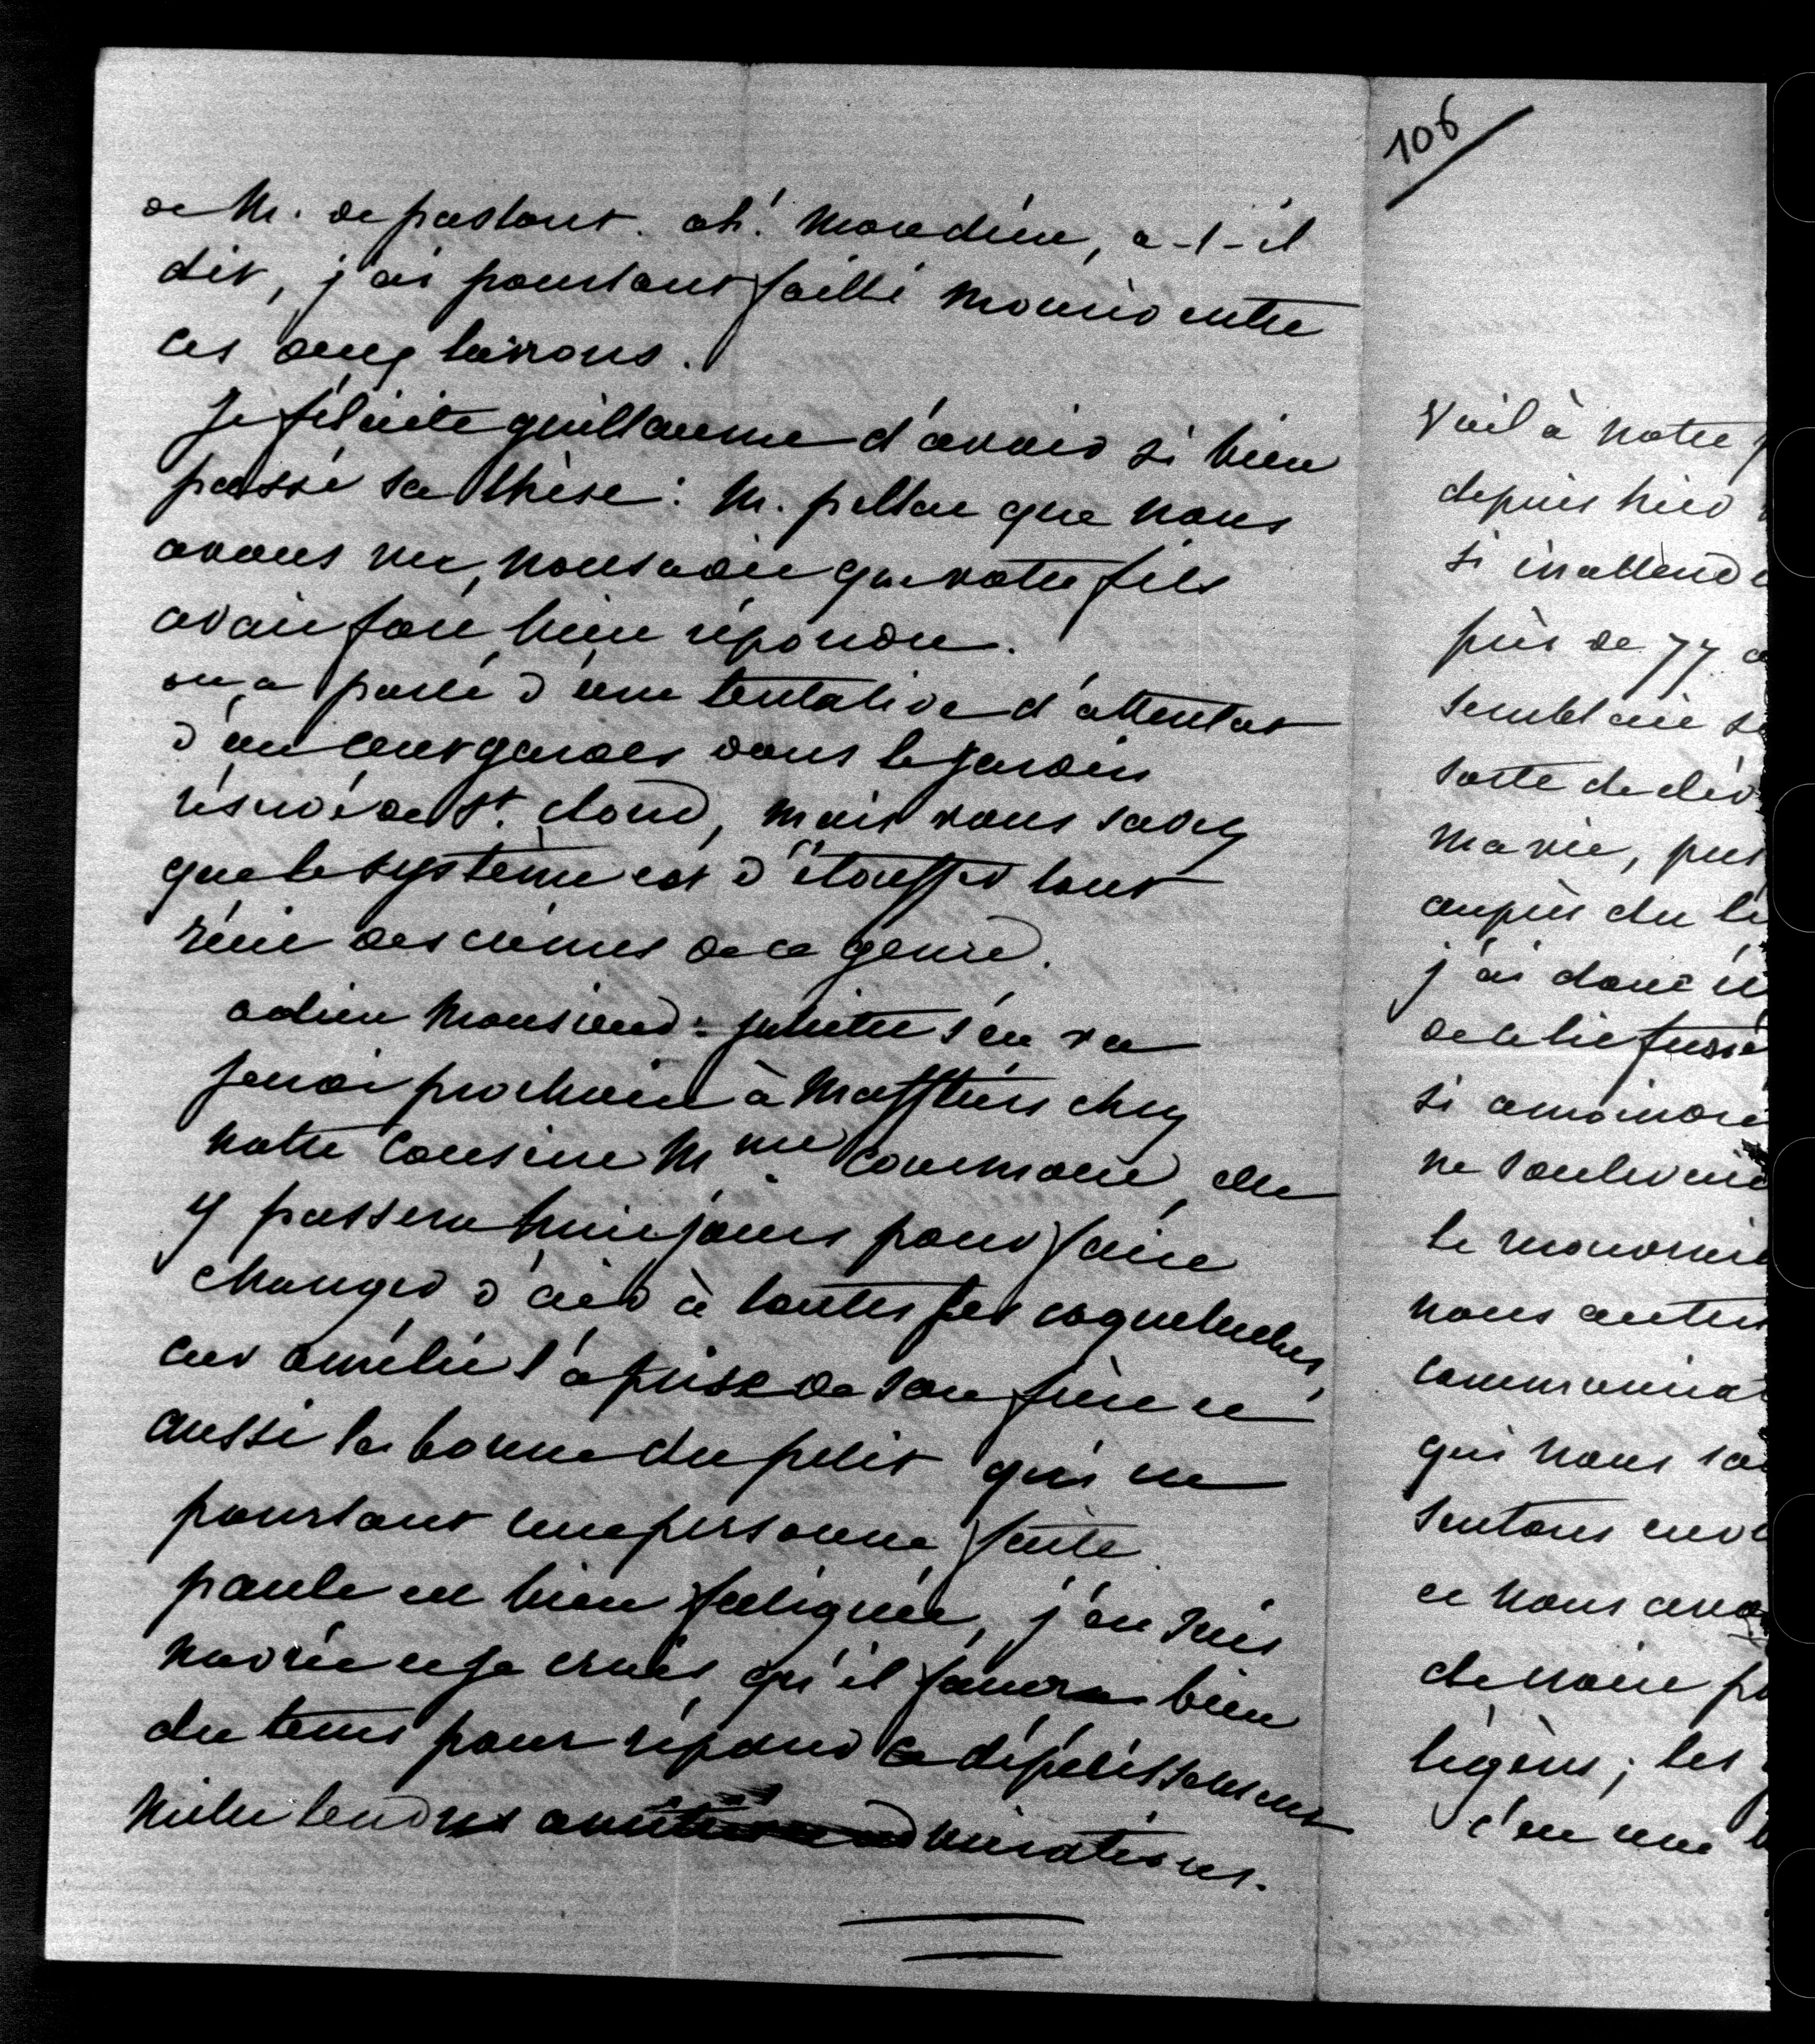 de M. de pastoret. ah! mon dieu, a-t-il
dit, j'ai pourtant failli mourir entre
ces deux larrons.
Je félicite guillaume d'avoir si bien
passé sa thèse: M. pellat que nous
avons vu, nous a dit que votre fils
avait fort bien répondu.
on a parlé d'une tentative d'attentat
d'un cent gardes dans le jardin
réservé de St. cloud, mais vous savez
que le système est d'étouffer tout
récit des crimes de ce genre.
adieu Monsieur: juliette s'en va
jeudi prochain à Maffliers chez
notre cousine Mme elle
y passera huit jours pour faire
changer d'air à toutes ses coqueluches,
car amélie l'a prise de son frère et
aussi la bonne du petit qui est
pourtant une personne forte.
paule est bien fatiguée, j'en suis
navrée et je crois qu'il faudra bien
du tems pour réparer ce dépérissement
mille tendres admirations.
106
Voilà notre
depuis hier
si inattend
près de 77 a
semblait s
sorte de
ma vie, pui
auprès du li
j'ai donc
de cette
si amoindri
ne soulevait
le
nous autres
communica
qui nous
sentons
et nous avo
de notre p
légère; les
c'est une